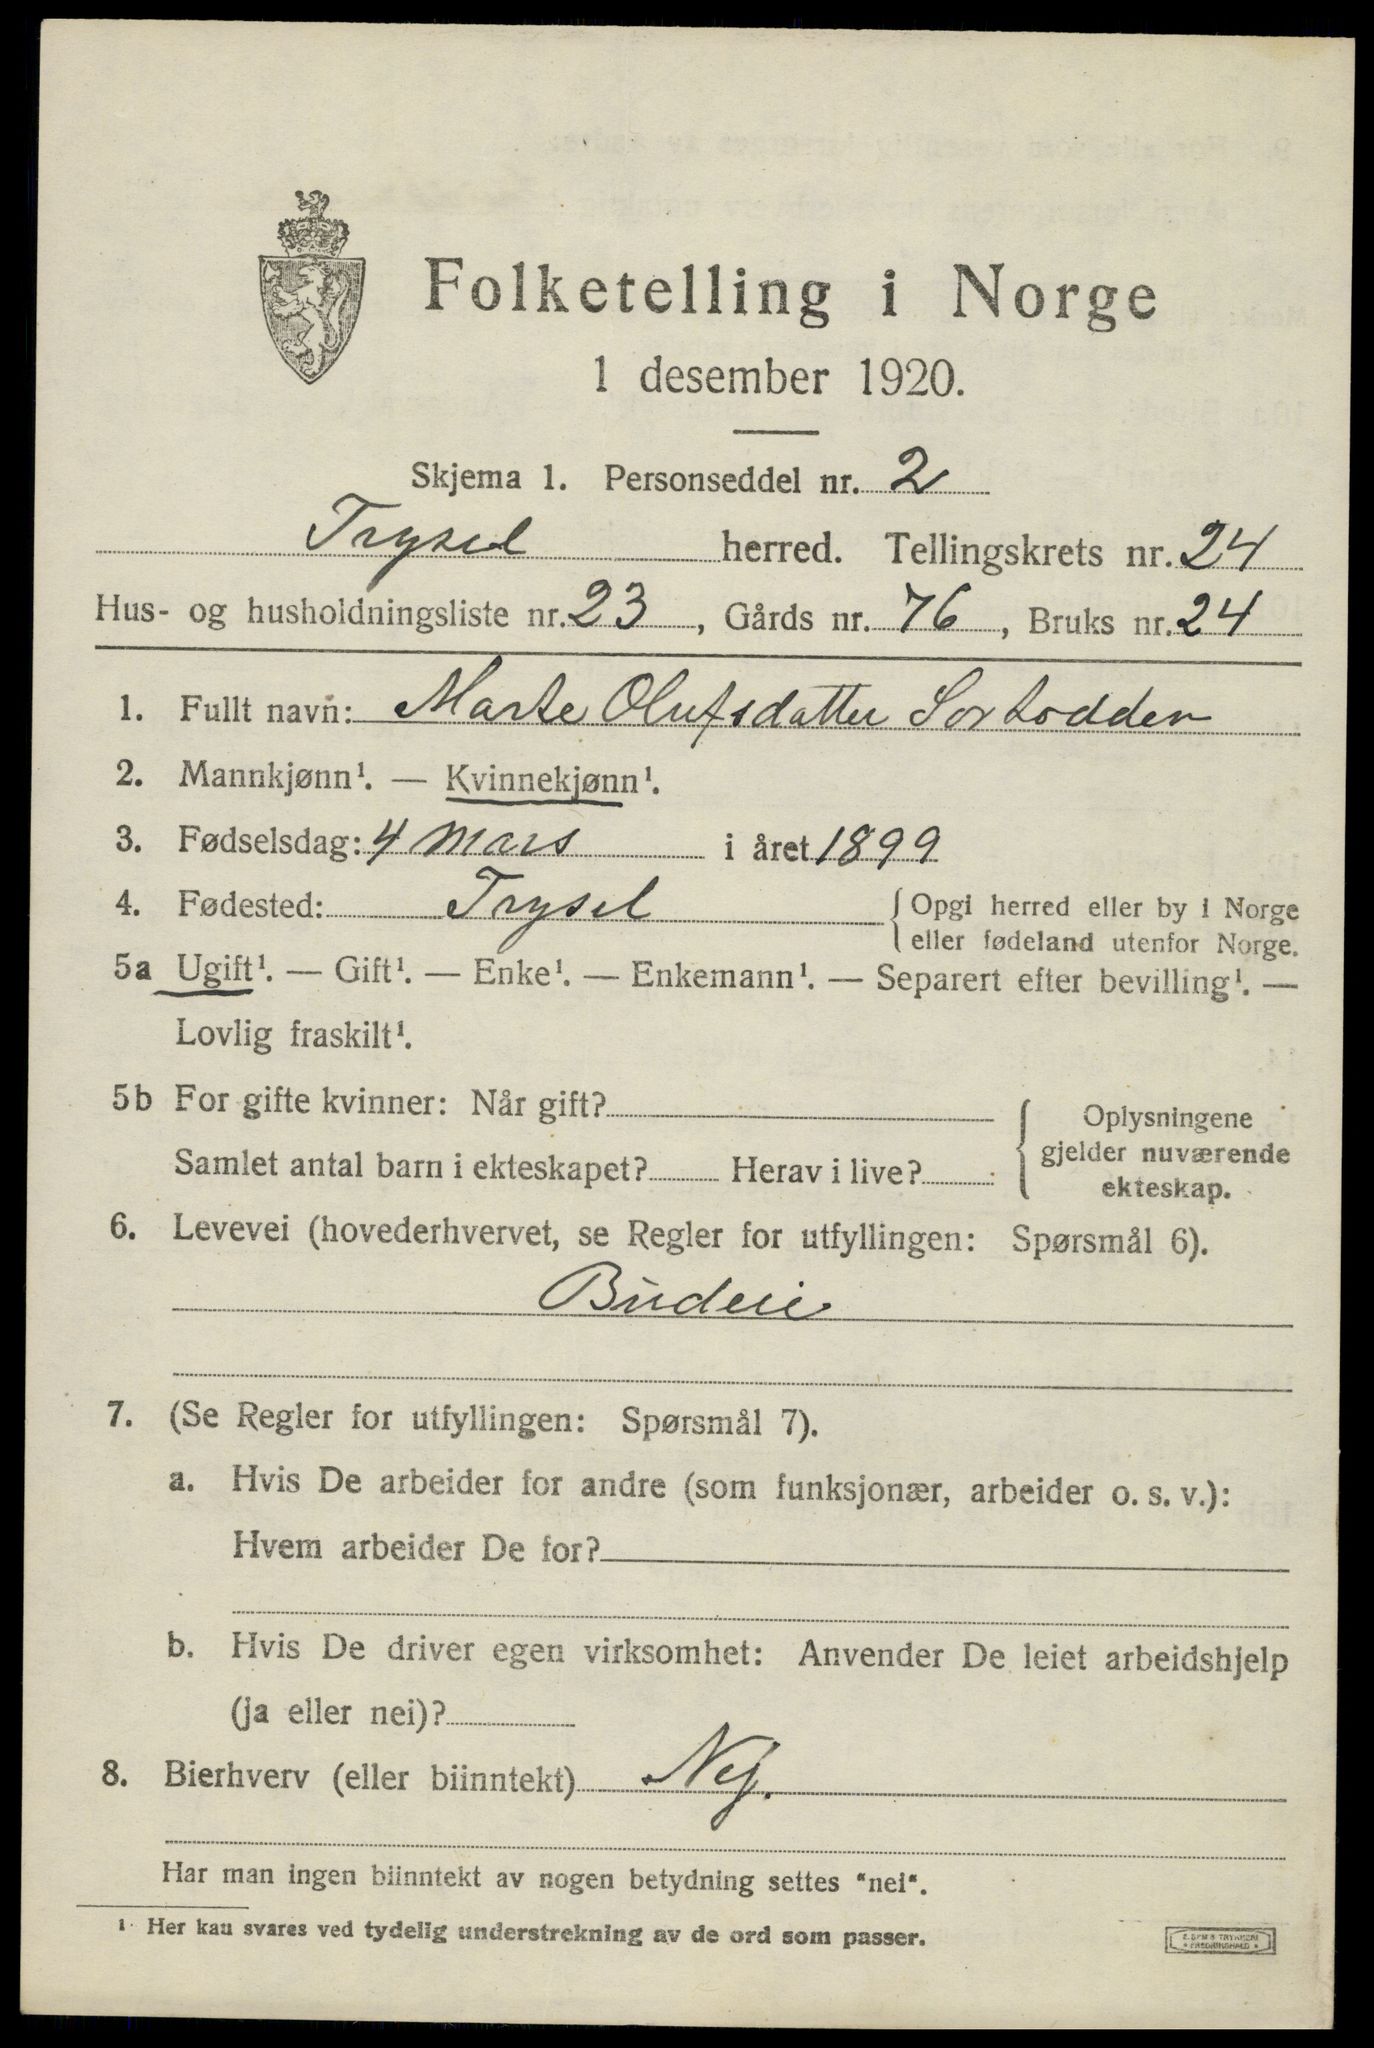 Folketelling i Norge
1 desember 1920.
Skjema 1. Personseddel nr. 2
Trysil herred. Tellingskrets nr. 24
Hus- og husholdningsliste nr. 23, Gårds nr. 76, Bruks nr. 24
1. Fullt navn: Marte Olufsdatter Sorhodden
2. Mannkjønn¹. — Kvinnekjønn¹.
3. Fødselsdag: 4 mars i året 1899
4. Fødested: Trysil { Opgi herred eller by i Norge
eller fødeland utenfor Norge.
5a Ugift¹. — Gift¹. — Enke¹. — Enkemann¹. — Separert efter bevilling¹. —
Lovlig fraskilt¹.
5b For gifte kvinner: Når gift?
Samlet antal barn i ekteskapet? Herav i live?
Oplysningene
gjelder nuværende
ekteskap.
6. Levevei (hovederhvervet, se Regler for utfyllingen: Spørsmål 6).
Budeie
7. (Se Regler for utfyllingen: Spørsmål 7).
a. Hvis De arbeider for andre (som funksjonær, arbeider o. s. v.):
Hvem arbeider De for?
b. Hvis De driver egen virksomhet: Anvender De leiet arbeidshjelp
(ja eller nei)?
8. Bierhverv (eller biinntekt) Nej.
Har man ingen biinntekt av nogen betydning settes "nei".
¹ Her kan svares ved tydelig understrekning av de ord som passer.
E. SEM'S TRYKKERI
FREDRIKSHALD